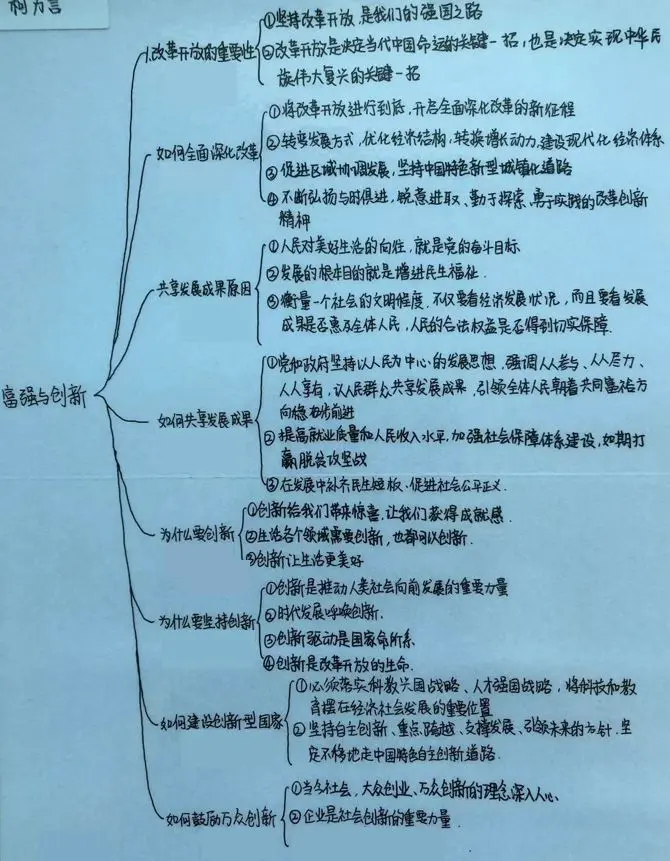 柯方言
1.改革开放的重要性
①坚持改革开放,是我们的强国之路
②改革开放是决定当代中国命运的关键一招,也是决定实现中华民
族伟大复兴的关键一招
如何全面深化改革
①将改革开放进行到底,开启全面深化改革的新征程
②转变发展方式,优化经济结构,转换增长动力,建设现代化经济体系
③促进区域协调发展,坚持中国特色新型城镇化道路
④不断弘扬与时俱进、锐意进取、勤于探索、勇于实践的改革创新
精神
共享发展成果原因
①人民对美好生活的向往,就是党的奋斗目标
②发展的根本目的就是增进民生福祉.
③衡量一个社会的文明程度,不仅要看经济发展状况,而且要看发展
成果是否惠及全体人民,人民的合法权益是否得到切实保障.
富强与创新
如何共享发展成果
①党和政府坚持以人民为中心的发展思想,强调人人参与、人人尽力、
人人享有,让人民群众共享发展成果,引领全体人民朝着共同富裕方
向稳步前进
②提高就业质量和人民收入水平,加强社会保障体系建设,如期打
赢脱贫攻坚战
③在发展中补齐民生短板、促进社会公平正义.
为什么要创新
①创新给我们带来惊喜,让我们获得成就感.
②生活各个领域需要创新,也都可以创新.
③创新让生活更美好
为什么要坚持创新
①创新是推动人类社会向前发展的重要力量
②时代发展呼唤创新.
③创新驱动是国家命所系
④创新是改革开放的生命.
如何建设创新型国家
①必须落实科教兴国战略、人才强国战略,将科技和教
育摆在经济社会发展的重要位置
②坚持自主创新、重点跨越、支撑发展、引领未来的方针.坚
定不移地走中国特色自主创新道路.
如何鼓励万众创新
①当今社会,大众创业、万众创新的理念深入人心.
②企业是社会创新的重要力量.